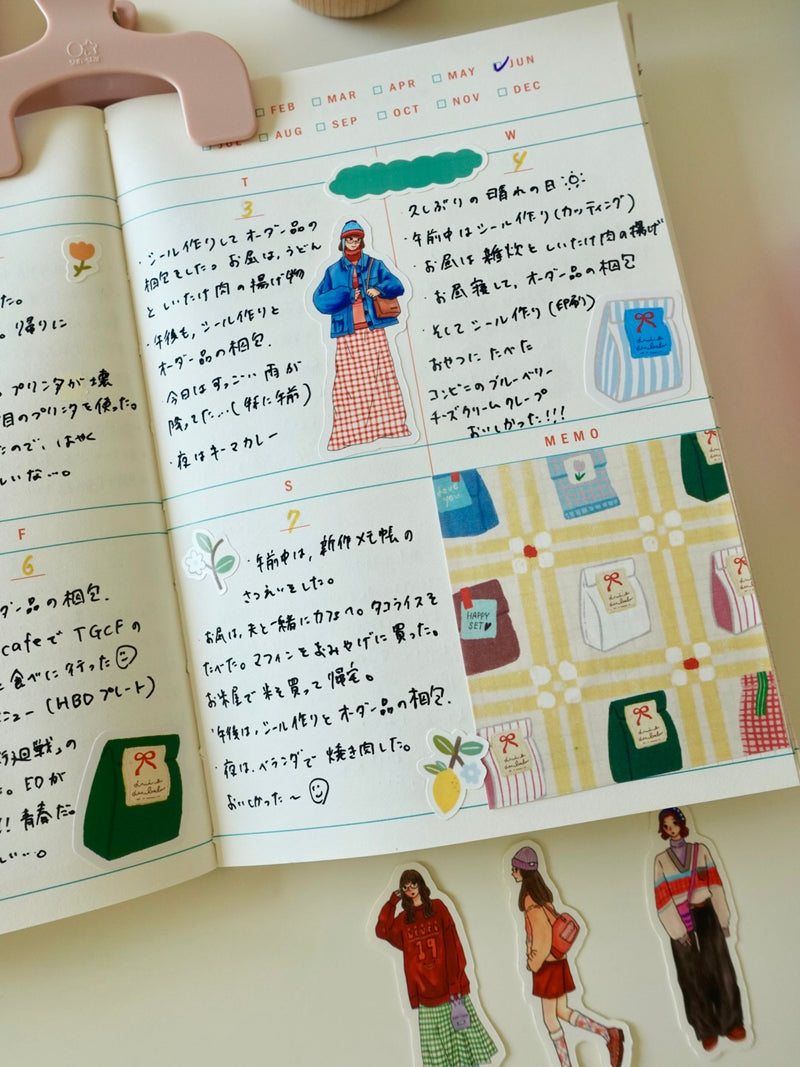 FEB MAR APR MAY JUN
JUL AUG SEP OCT NOV DEC
た。
。帰りに
プリンタが壊
目のプリンタを使った。
たので、はやく
しいな…。
T
3
・シール作りして オーダー品の
梱包をした。お昼は、うどん
と しいたけ肉の揚げ物
・午後も、シール作りと
オーダー品の梱包.
・今日は すっごい 雨が
降ってた…(特に午前)
・夜は キーマカレー
W
4
久しぶりの 晴れの日
・午前中はシール作り(カッティング)
・お昼は 雑炊と しいたけ肉の揚げ
・お昼寝して、オーダー品の梱包
・そしてシール作り(印刷)
おやつに たべた
コンビニのブルーベリー
チーズクリームクレープ
おいしかった!!!
F
6
ダー品の梱包.
cafeで TGCFの
食べに行った
ニュー(HBDプレート)
廻戦」の
た。EDが
! 青春だ。
い…。
S
7
・午前中は、新作メモ帳の
さつえいをした。
お昼は、夫と一緒にカフェへ。タコライスを
たべた。マフィンをおみやげに買った。
お米屋で米を買って帰宅。
・午後は、シール作りと オーダー品の梱包.
・夜は、ベランダで 焼き肉した。
おいしかった〜
MEMO
Love you
HAPPY SET
19